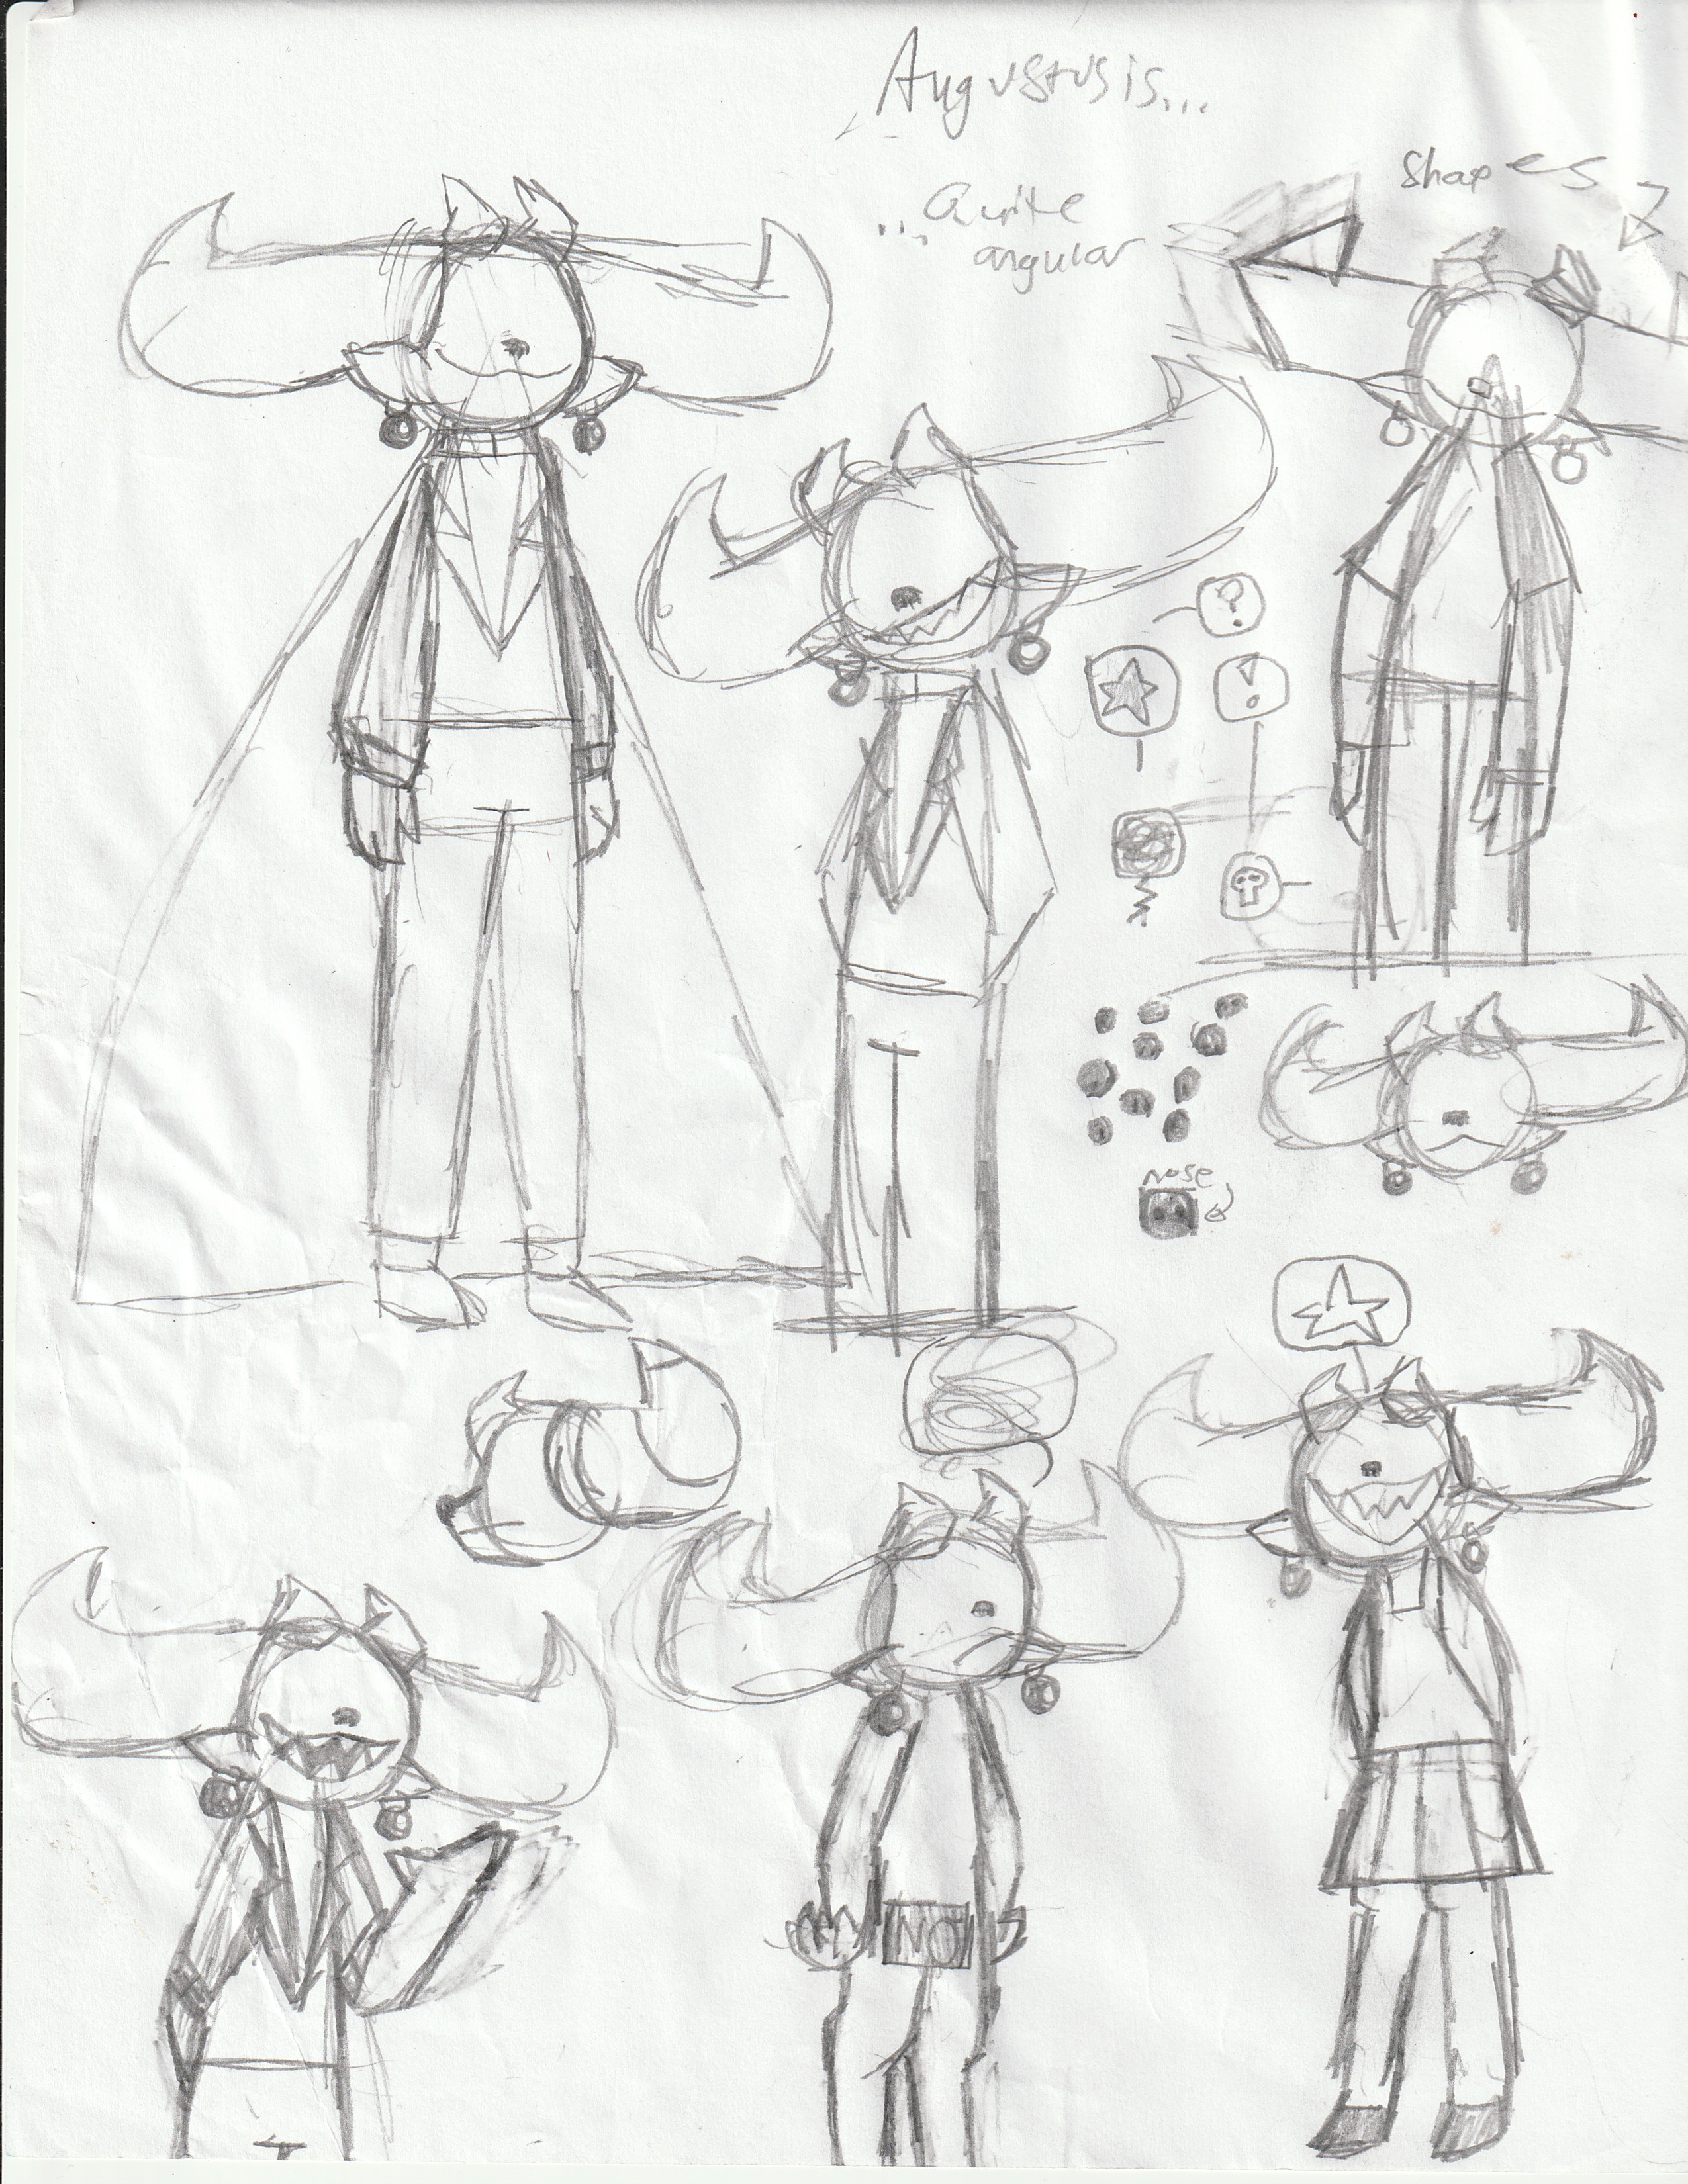 Augustus is...
...Quite
angular
Shapes
?
!
nose
NO